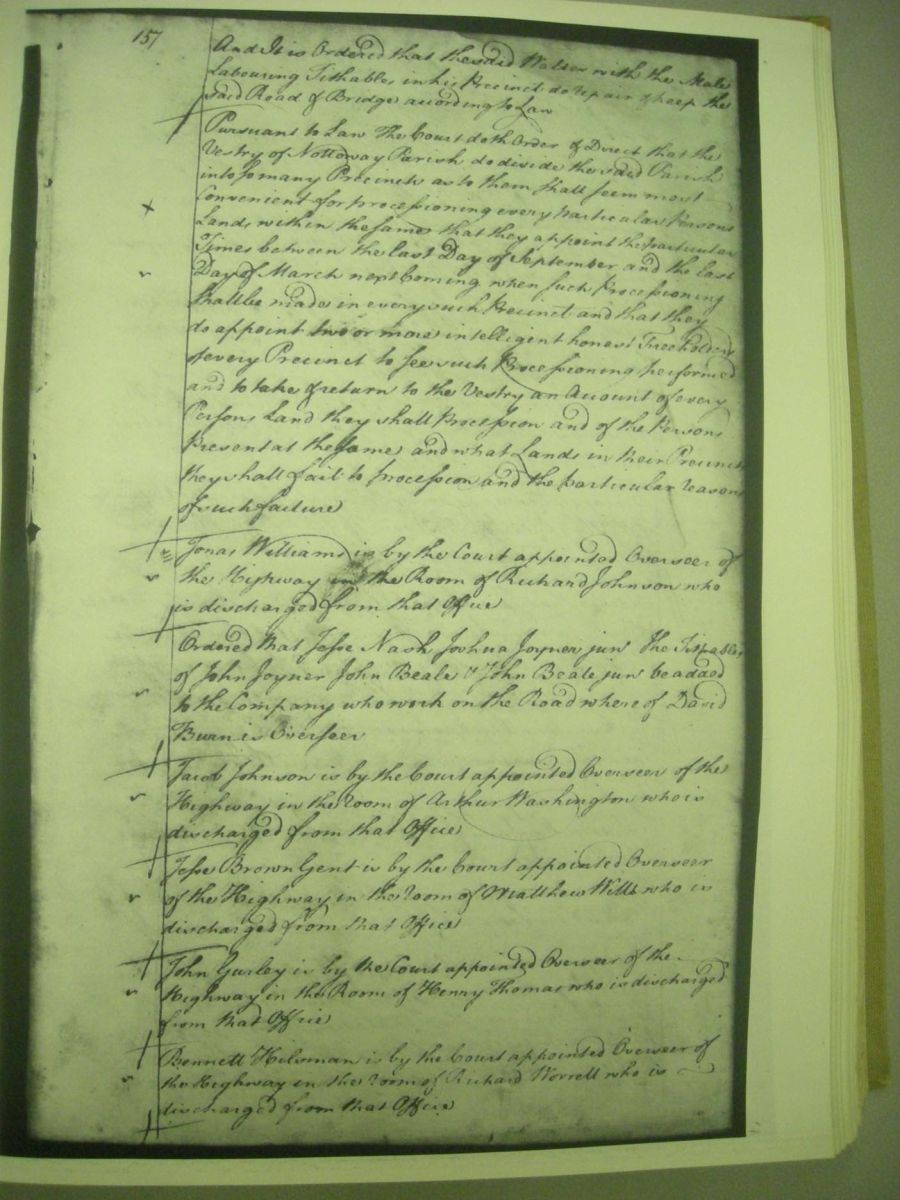 157
And It is Ordered that the said Walter with the Male
Labouring Tithables in his Precinct do repair & keep the
said Road & Bridges according to Law
Pursuant to Law The Court doth Order & Direct that the
Vestry of Nottoway Parish do divide the said Parish
into so many Precincts as to them shall seem most
Convenient for processioning every particular Persons
Lands within the same that they appoint the particular
Times between the last Day of September and the last
Day of March next Coming when such Processioning
shall be made in every such Precinct and that they
do appoint two or more intelligent honest Freeholders
of every Precinct to see such Processioning performed
and to take & return to the Vestry an Account of every
Persons Land they shall Procession and of the Persons
Present at the same and what Lands in their Precincts
they shall fail to procession and the particular reasons
of such failure
Jonas Williams is by the Court appointed Overseer of
the Highway in the Room of Richard Johnson who
is discharged from that Office
Ordered that Jesse Nash Joshua Joyner junr The Tithables
of John Joyner John Beale & John Beale junr be added
to the Company who work on the Road where of David
Bunn is Overseer
Jacob Johnson is by the Court appointed Overseer of the
Highway in the room of Arthur Washington who is
discharged from that Office
Jesse Brown Gent is by the Court appointed Overseer
of the Highway in the room of Matthew Wills who is
discharged from that Office
John Gurley is by the Court appointed Overseer of the
Highway in the Room of Henry Thomas who is discharged
from that Office
Bennett Hilsman is by the Court appointed Overseer of
the Highway in the room of Richard Worrell who is
discharged from that Office